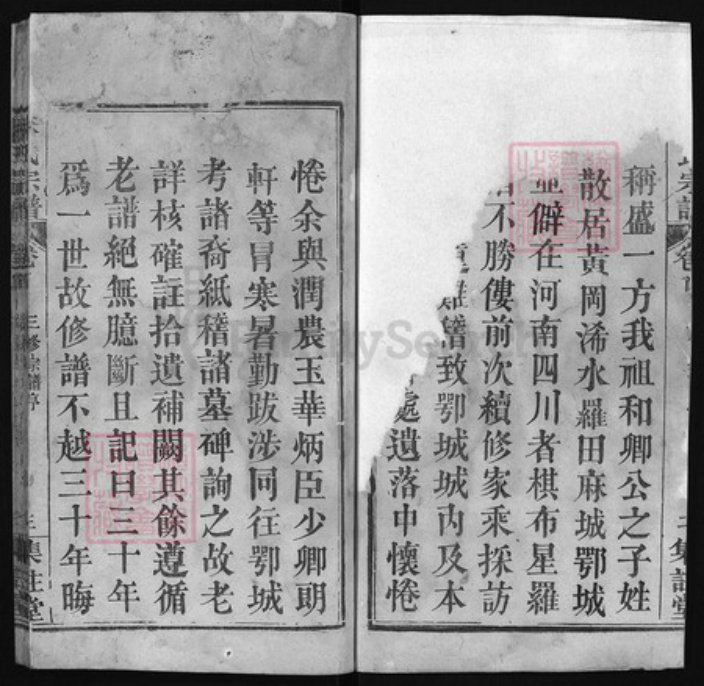 稱盛一方我祖和卿公之子姓
散居黃岡浠水羅田麻城鄂城
僻在河南四川者棋布星羅
不勝僂前次續修家乘採訪
譜致鄂城城內及本
處遺落中懷惓
惓余與潤農玉華炳臣少卿朗
軒等冒寒暑勤跋涉同往鄂城
考諸裔紙稽諸墓碑詢之故老
詳核確註拾遺補闕其餘遵循
老譜絕無臆斷且記曰三十年
爲一世故修譜不越三十年晦
氏宗譜 卷首 三修宗譜序 三
FamilySearch